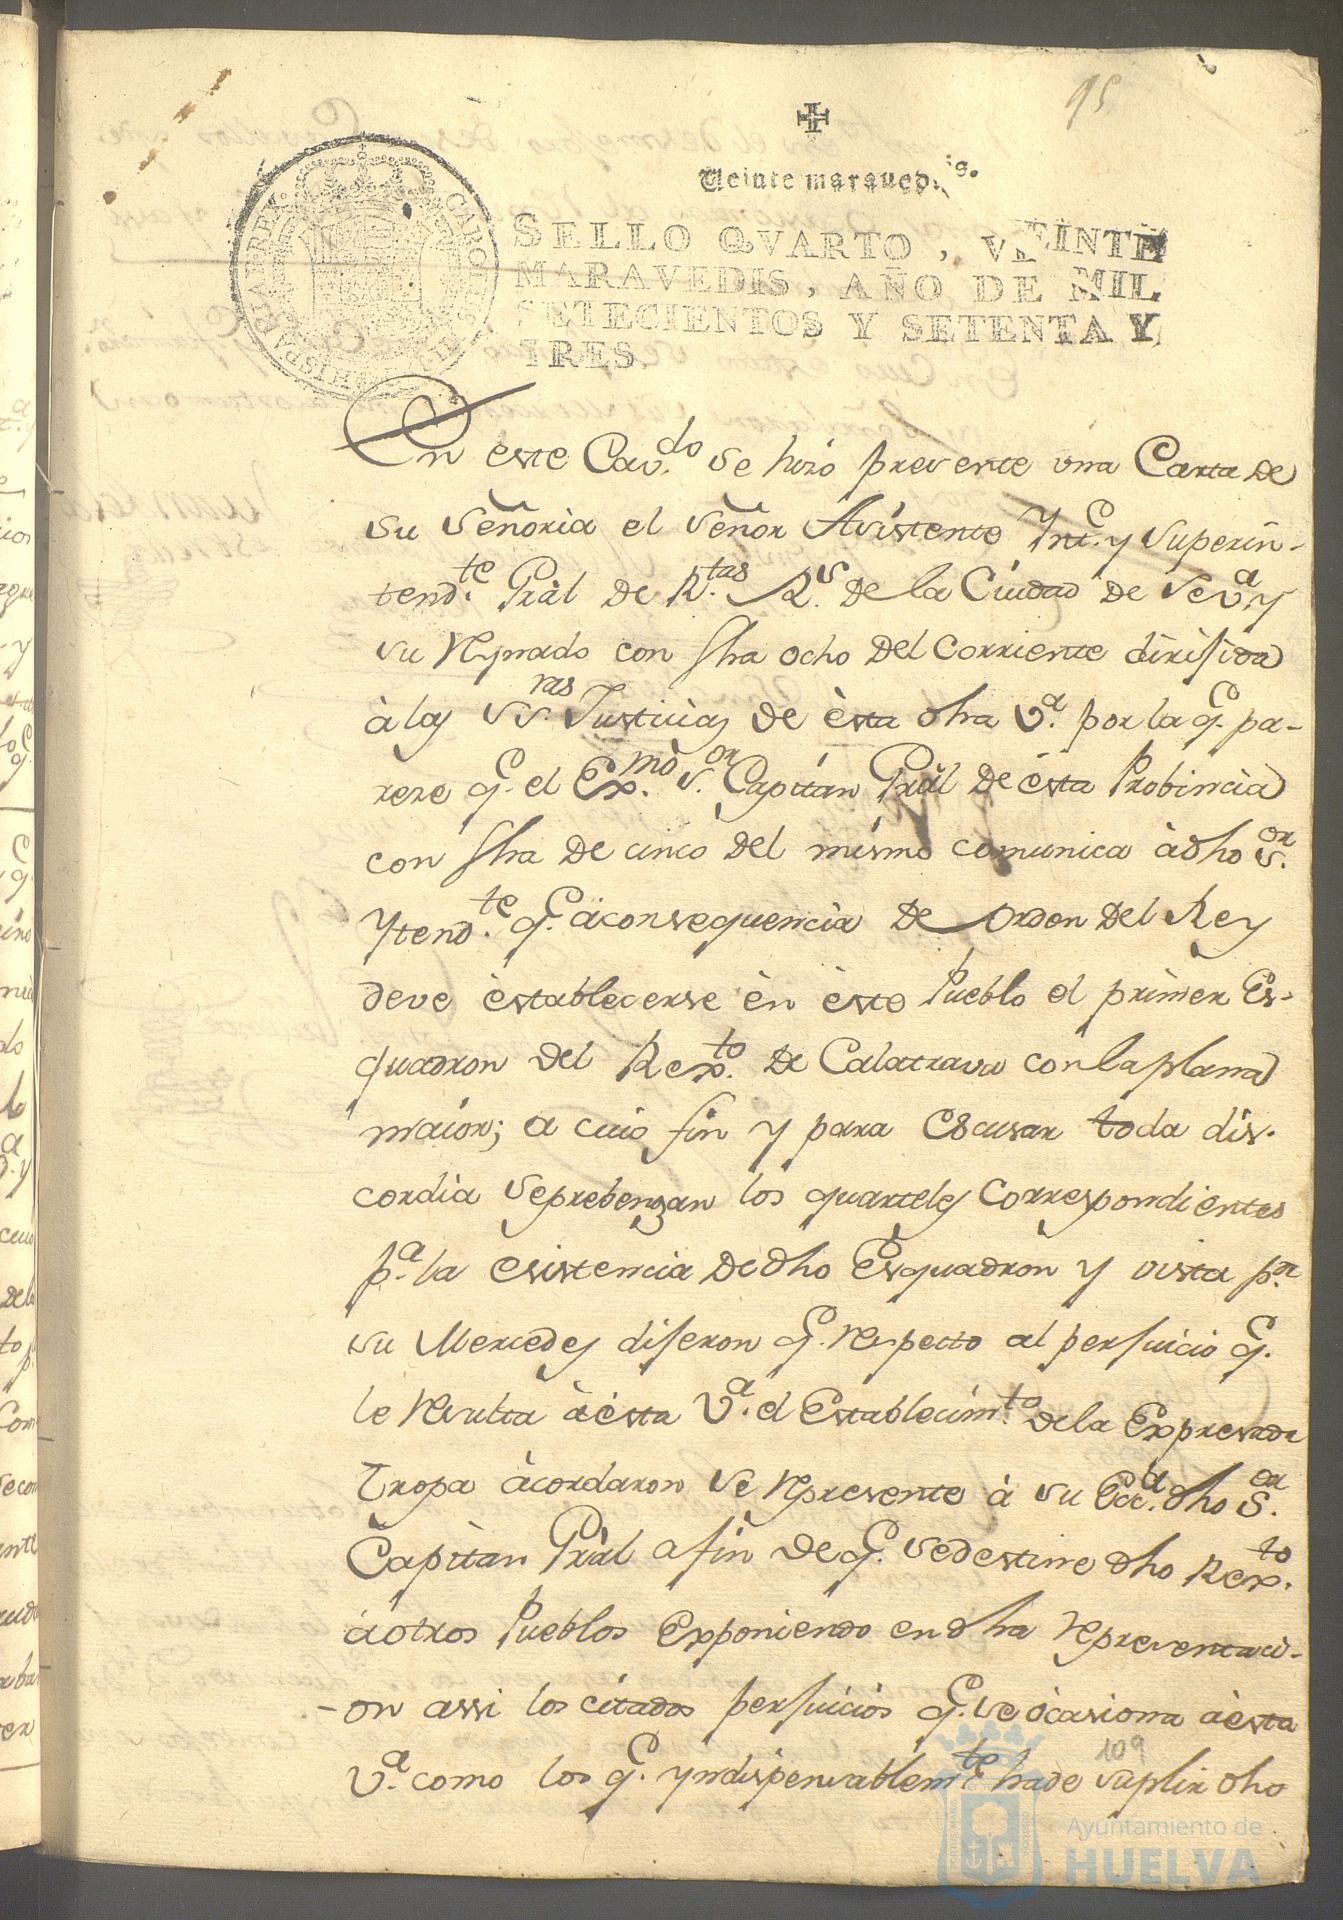 95
Veinte maravedis.
SELLO QVARTO, VEINTE
MARAVEDIS, AÑO DE MIL
SETECIENTOS Y SETENTA Y
TRES.
CARO HISPANIAR REX
En este Cav.do se hizo presente una Carta de
su señoria el señor Asistente Int.e y superin-
tend.te Pràl de R.tas R.s de la Ciudad de Sev.a y
su Reynado con fha ocho del corriente dirijida
à las SS.ras Justicias de èsta dha V.a por la q.e pa-
reze q.e el Ex.mo S.or Capitan Pràl de èsta Probincia
con fha de cinco del mismo comunica à dho S.or
Ytend.te q.e à consequencia de orden del Rey
deve èstablecerse èn èste Pueblo el primer Es-
quadron del Rex.to de Calatrava con la plana
maior; a cuio fin y para escusar toda dis-
cordia se prebengan los quarteles correspondientes
p.a la esistencia de dho Esquadron y vista p.or
su Mercedes dijeron q.e respecto al perjuicio q.e
le resulta à èsta V.a el Establecim.to de la Expresada
tropa àcordaron se represente à su Exc.a dho S.or
Capitan Pràl a fin de q.e se destine dho Rex.to
à otros Pueblos Exponiendo en dha representaci-
-on assi los citados perjuicios q.e se òcasiona à èsta
V.a como los q.e yndispensablem.te hade suplir dho
109
Ayuntamiento de
HUELVA